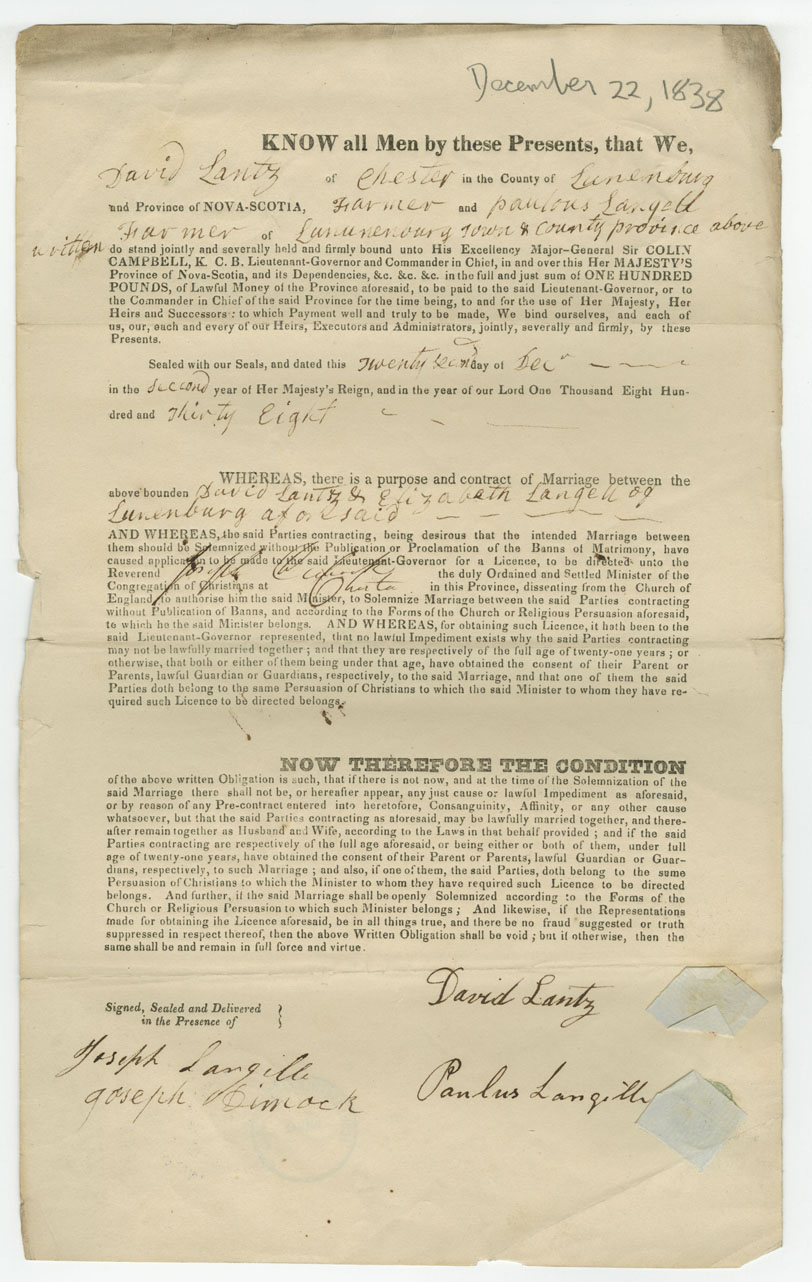 December 22, 1838
KNOW all Men by these Presents, that We,
David Lantz of Chester in the County of Lunenburg
and Province of NOVA-SCOTIA, Farmer and Paulous Langell
Farmer of Lununenburg Town & County province above
written do stand jointly and severally held and firmly bound unto His Excellency Major-General Sir COLIN
CAMPBELL, K. C. B. Lieutenant-Governor and Commander in Chief, in and over this Her MAJESTY'S
Province of Nova-Scotia, and its Dependencies, &c. &c. &c. in the full and just sum of ONE HUNDRED
POUNDS, of Lawful Money of the Province aforesaid, to be paid to the said Lieutenant-Governor, or to
the Commander in Chief of the said Province for the time being, to and for the use of Her Majesty, Her
Heirs and Successors: to which Payment well and truly to be made, We bind ourselves, and each of
us, our, each and every of our Heirs, Executors and Administrators, jointly, severally and firmly, by these
Presents.
Sealed with our Seals, and dated this Twenty day of Decr
in the Second year of Her Majesty's Reign, and in the year of our Lord One Thousand Eight Hun-
dred and Thirty Eight
WHEREAS, there is a purpose and contract of Marriage between the
above bounden David Lantz & Elizabeth Langell of
Lunenburg aforesaid
AND WHEREAS, the said Parties contracting, being desirous that the intended Marriage between
them should be Solemnized without the Publication or Proclamation of the Banns of Matrimony, have
caused application to be made to the said Lieutenant-Governor for a Licence, to be directed unto the
Reverend Joseph the duly Ordained and Settled Minister of the
Congregation of Christians at Chester in this Province, dissenting from the Church of
England, to authorise him the said Minister, to Solemnize Marriage between the said Parties contracting
without Publication of Banns, and according to the Forms of the Church or Religious Persuasion aforesaid,
to which he the said Minister belongs. AND WHEREAS, for obtaining such Licence, it hath been to the
said Lieutenant-Governor represented, that no lawful Impediment exists why the said Parties contracting
may not be lawfully married together; and that they are respectively of the full age of twenty-one years; or
otherwise, that both or either of them being under that age, have obtained the consent of their Parent or
Parents, lawful Guardian or Guardians, respectively, to the said Marriage, and that one of them the said
Parties doth belong to the same Persuasion of Christians to which the said Minister to whom they have re-
quired such Licence to be directed belongs.
NOW THEREFORE THE CONDITION
of the above written Obligation is such, that if there is not now, and at the time of the Solemnization of the
said Marriage there shall not be, or hereafter appear, any just cause or lawful Impediment as aforesaid,
or by reason of any Pre-contract entered into heretofore, Consanguinity, Affinity, or any other cause
whatsoever, but that the said Parties contracting as aforesaid, may be lawfully married together, and there-
after remain together as Husband and Wife, according to the Laws in that behalf provided; and if the said
Parties contracting are respectively of the full age aforesaid, or being either or both of them, under full
age of twenty-one years, have obtained the consent of their Parent or Parents, lawful Guardian or Guar-
dians, respectively, to such Marriage; and also, if one of them, the said Parties, doth belong to the same
Persuasion of Christians to which the Minister to whom they have required such Licence to be directed
belongs. And further, if the said Marriage shall be openly Solemnized according to the Forms of the
Church or Religious Persuasion to which such Minister belongs; And likewise, if the Representations
made for obtaining the Licence aforesaid, be in all things true, and there be no fraud suggested or truth
suppressed in respect thereof, then the above Written Obligation shall be void; but if otherwise, then the
same shall be and remain in full force and virtue.
David Lantz
Signed, Sealed and Delivered
in the Presence of
Joseph Langille
Joseph Dimock
Paulus Langille